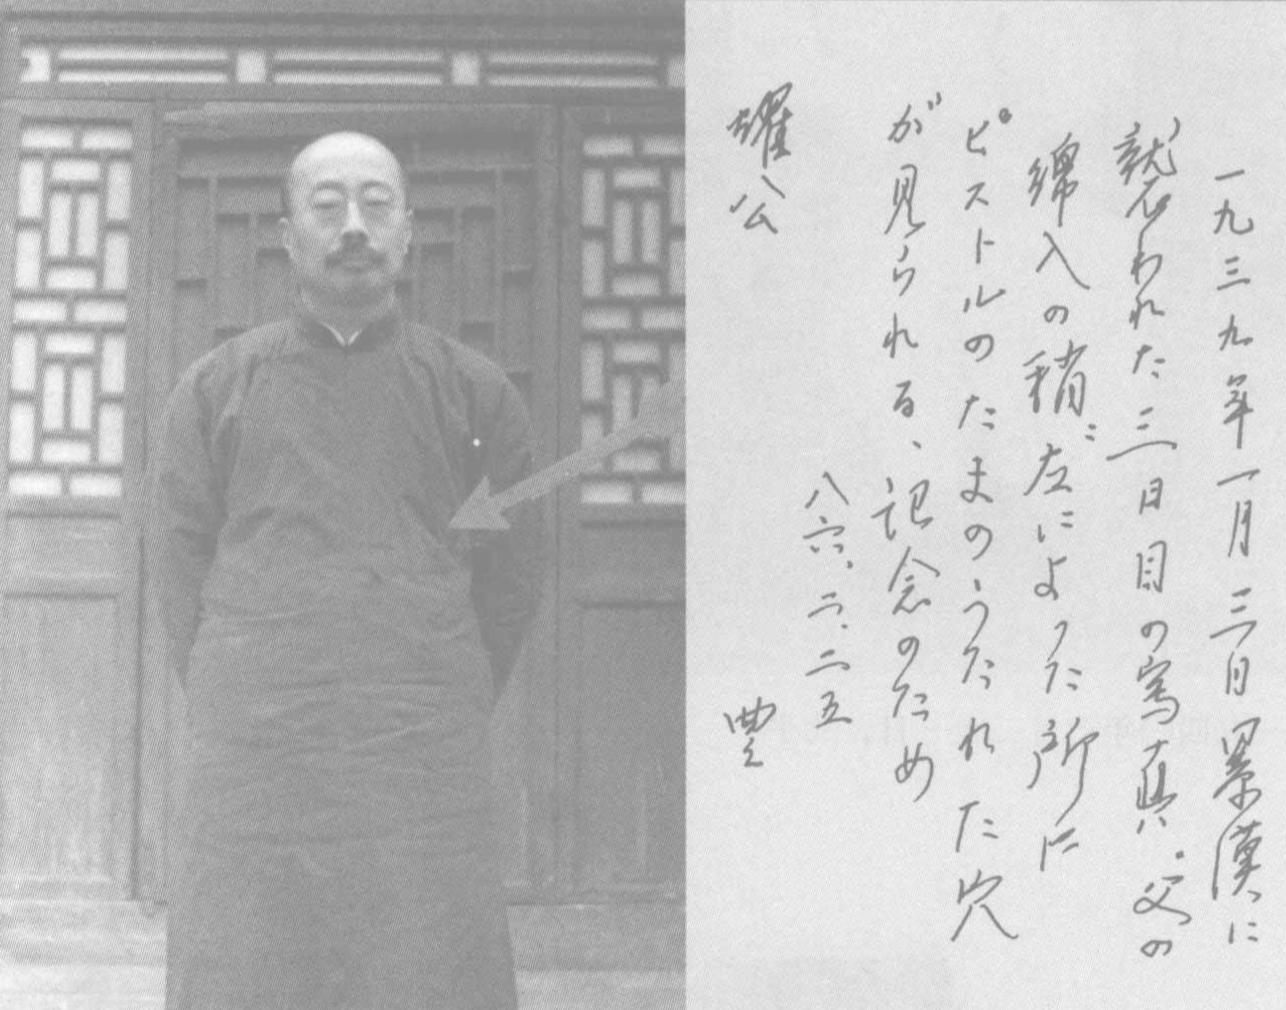 一九三九年一月三日暴漢に
襲われた三日目の写真、父の
綿入の稍〻左によった所に
ピストルのたまのうたれた穴
が見られる、記念のため
八六、二、二五
豊
耀公